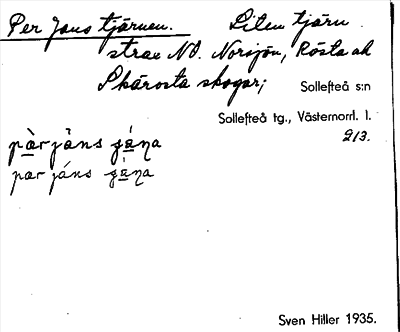 Per Jans tjärnen. Liten tjärn
strax NO. Norsjön, Rösta ok
Skärosta skogar; Sollefteå s:n
Sollefteå tg., Västernorrl. l.
213.
Sven Hiller 1935.